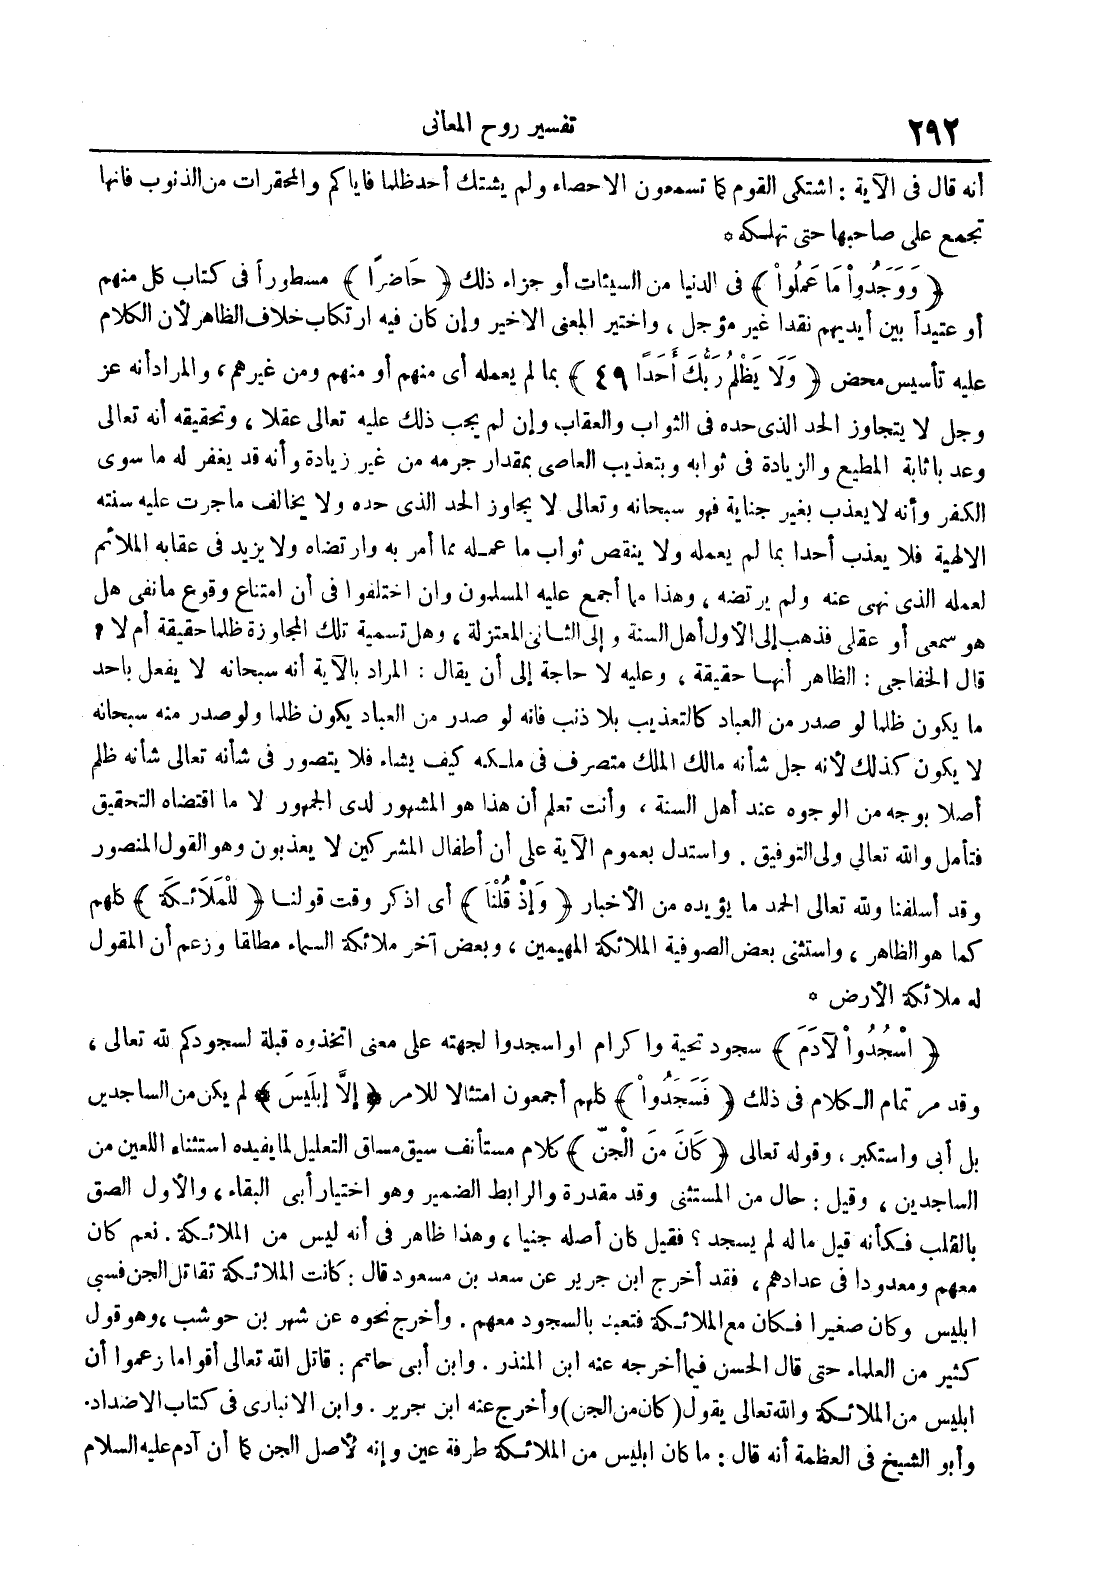 ٢٩٢
تفسير روح المعانى
أنه قال فى الآية : اشتكى القوم كما تسمعون الاحصاء ولم يشتك أحد ظلما فاياكم والمحقرات من الذنوب فانها
تجمع على صاحبها حتى تهلكه *
﴿ وَوَجَدُواْ مَا عَمِلُواْ ﴾ فى الدنيا من السيئات أو جزاء ذلك ﴿ حَاضرًا ﴾ مسطوراً فى كتاب كل منهم
أو عتيداً بين أيديهم نقدا غير مؤجل ، واختير المعنى الاخير وإن كان فيه ارتكاب خلاف الظاهر لأن الكلام
عليه تأسيس محض ﴿ وَلَا يَظْلُمُ رَبُّكَ أَحَدًا ٤٩ ﴾ بما لم يعمله أى منهم أو منهم ومن غيرهم ، والمراد أنه عز
وجل لا يتجاوز الحد الذى حده فى الثواب والعقاب وإن لم يجب ذلك عليه تعالى عقلا ، وتحقيقه أنه تعالى
وعد باثابة المطيع والزيادة فى ثوابه وبتعذيب العاصى بمقدار جرمه من غير زيادة وأنه قد يغفر له ما سوى
الكفر وأنه لا يعذب بغير جناية فهو سبحانه وتعالى لا يجاوز الحد الذى حده ولا يخالف ما جرت عليه سنته
الالهية فلا يعذب أحدا بما لم يعمله ولا ينقص ثواب ما عمله مما أمر به وارتضاه ولا يزيد فى عقابه الملائم
لعمله الذى نهى عنه ولم يرتضه ، وهذا مما أجمع عليه المسلمون وان اختلفوا فى أن امتناع وقوع ما نفى هل
هو سمعى أو عقلى فذهب إلى الأول أهل السنة وإلى الثانى المعتزلة ، وهل تسمية تلك المجاوزة ظلما حقيقة أم لا ؟
قال الخفاجى : الظاهر أنها حقيقة ، وعليه لا حاجة إلى أن يقال : المراد بالآية أنه سبحانه لا يفعل باحد
ما يكون ظلما لو صدر من العباد كالتعذيب بلا ذنب فانه لو صدر من العباد يكون ظلما ولو صدر منه سبحانه
لا يكون كذلك لأنه جل شأنه مالك الملك متصرف فى ملكه كيف يشاء فلا يتصور فى شأنه تعالى شأنه ظلم
أصلا بوجه من الوجوه عند أهل السنة ، وأنت تعلم أن هذا هو المشهور لدى الجمهور لا ما اقتضاه التحقيق
فتأمل والله تعالي ولى التوفيق . واستدل بعموم الآية على أن أطفال المشركين لا يعذبون وهو القول المنصور
وقد أسلفنا ولله تعالى الحمد ما يؤيده من الأخبار ﴿ وَإِذْ قُلْنَا ﴾ أى اذكر وقت قولنا ﴿ للْمَلَائكَة ﴾ كلهم
كما هو الظاهر ، واستثنى بعض الصوفية الملائكة المهيمين ، وبعض آخر ملائكة السماء مطلقا وزعم أن المقول
له ملائكة الأرض *
﴿ اسْجُدُواْ لآدَمَ ﴾ سجود تحية واكرام او اسجدوا لجهته على معنى اتخذوه قبلة لسجودكم لله تعالى ،
وقد مر تمام الكلام فى ذلك ﴿ فَسَجَدُواْ ﴾ كلهم أجمعون امتثالا للامر ﴿ إلَّا إبليَسَ ﴾ لم يكن من الساجدين
بل أبى واستكبر ، وقوله تعالى ﴿ كَانَ منَ الْجنّ ﴾ كلام مستأنف سيق مساق التعليل لما يفيده استثناء اللعين من
الساجدين ، وقيل : حال من المستثنى وقد مقدرة والرابط الضمير وهو اختيار أبى البقاء ، والأول الصق
بالقلب فكأنه قيل ما له لم يسجد ؟ فقيل كان أصله جنيا ، وهذا ظاهر فى أنه ليس من الملائكة . نعم كان
معهم ومعدودا فى عدادهم ، فقد أخرج ابن جرير عن سعد بن مسعود قال : كانت الملائكة تقاتل الجن فسبى
ابليس وكان صغيرا فكان مع الملائكة فتعبد بالسجود معهم . وأخرج نحوه عن شهر بن حوشب ، وهو قول
كثير من العلماء حتى قال الحسن فيما أخرجه عنه ابن المنذر . وابن أبى حاتم : قاتل الله تعالى أقواما زعموا أن
ابليس من الملائكة والله تعالى يقول (كان من الجن) وأخرج عنه ابن جرير . وابن الانبارى فى كتاب الاضداد.
وأبو الشيخ فى العظمة أنه قال : ما كان ابليس من الملائكة طرفة عين وإنه لأصل الجن كما أن آدم عليه السلام